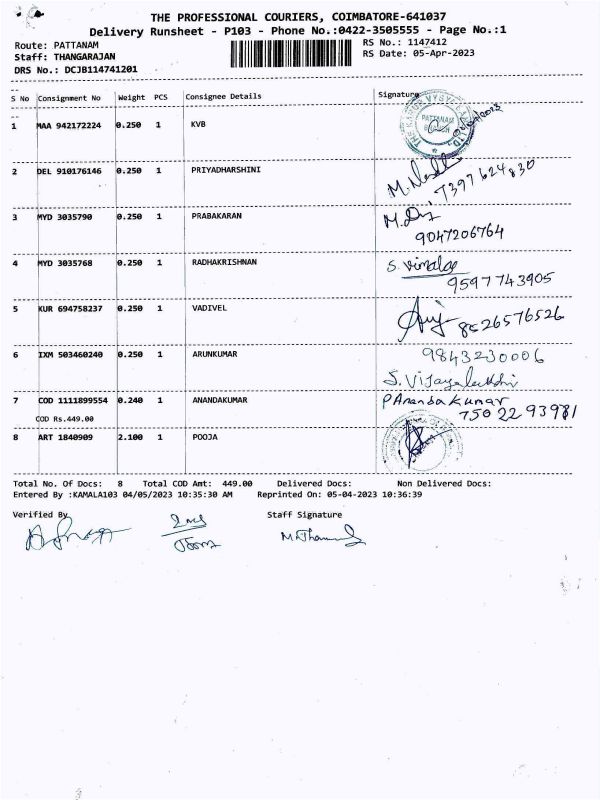 THE PROFESSIONAL COURIERS, COIMBATORE-641037
Delivery Runsheet - P103 - Phone No.:0422-3505555 - Page No.:1
Route: PATTANAM RS No.: 1147412
Staff: THANGARAJAN RS Date: 05-Apr-2023
DRS No.: DCJB114741201
S No Consignment No Weight PCS Consignee Details Signature
1 MAA 942172224 0.250 1 KVB
PATTANAM
2 DEL 910176146 0.250 1 PRIYADHARSHINI
7397624830
3 MYD 3035790 0.250 1 PRABAKARAN
9047206764
4 MYD 3035768 0.250 1 RADHAKRISHNAN S. Vimala
9597743905
5 KUR 694758237 0.250 1 VADIVEL
8526576526
6 IXM 503460240 0.250 1 ARUNKUMAR 9843230006
S. Vijayalakshmi
7 COD 1111899554 0.240 1 ANANDAKUMAR P Ananda Kumar
COD Rs.449.00 750 22 93981
8 ART 1840909 2.100 1 POOJA
Total No. Of Docs: 8 Total COD Amt: 449.00 Delivered Docs: Non Delivered Docs:
Entered By :KAMALA103 04/05/2023 10:35:30 AM Reprinted On: 05-04-2023 10:36:39
Verified By Staff Signature